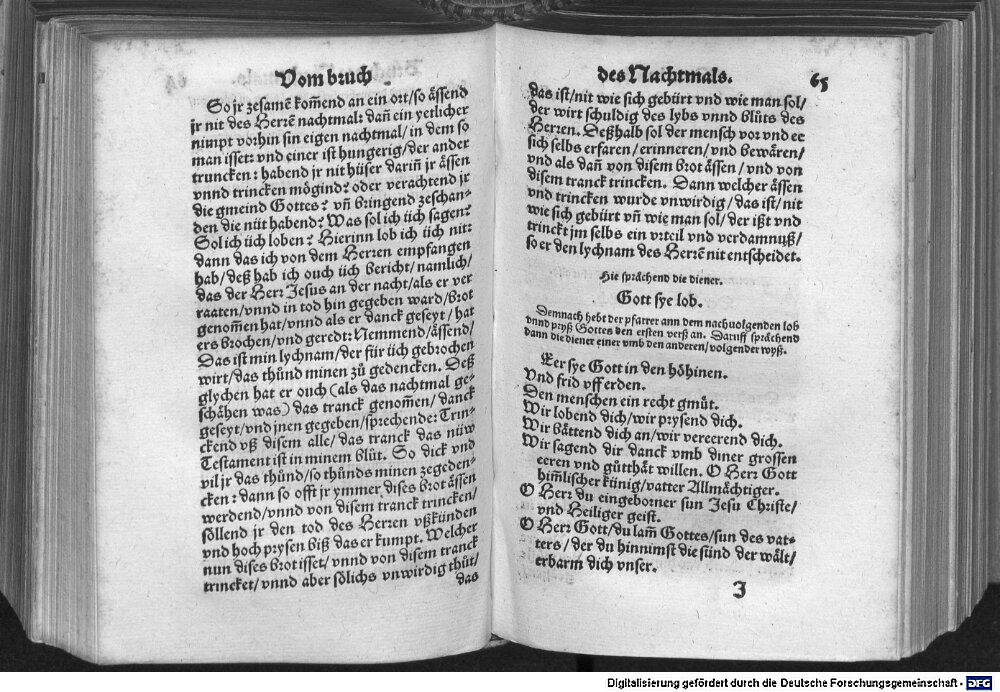 Vom bruch
So jr zesamē komend an ein ort/so ässend
jr nit des Herrē nachtmal: dañ ein yetlicher
nimpt vorhin sin eigen nachtmal/in dem so
man isset: vnd einer ist hungerig/der ander
truncken: habend jr nit hüser dariñ jr ässen
vnnd trincken mögind? oder verachtend jr
die gmeind Gottes? vñ bringend zeschan-
den die nüt habend? Was sol ich üch sagen?
Sol ich üch loben? Hierinn lob ich üch nit:
dann das ich von dem Herren empfangen
hab/deß hab ich ouch üch bericht/namlich/
das der Herr Jesus an der nacht/als er ver
raaten/vnnd in tod hin gegeben ward/brot
genom̃en hat/vnnd als er danck geseyt/hat
ers brochen/vnd geredt: Nemmend/ässend/
Das ist min lychnam/der für üch gebrochen
wirt/das thůnd minen zů gedencken. Deß
glychen hat er ouch (als das nachtmal ge-
schähen was) das tranck genom̃en/danck
geseyt/vnd jnen gegeben/sprechende: Trin-
ckend vß disem alle/das tranck das nüw
Testament ist in minem blůt. So dick vnd
vil jr das thůnd/so thůnds minen zegeden-
cken: dann so offt jr ymmer dises brot ässen
werdend/vnnd von disem tranck trincken/
söllend jr den tod des Herren vßkünden
vnd hoch prysen biß das er kumpt. Welcher
nun dises brot isset/vnnd von disem tranck
trincket/vnnd aber sölichs vnwirdig thůt/
das
des Nachtmals. 65
das ist/nit wie sich gebürt vnd wie man sol/
der wirt schuldig des lybs vnnd blůts des
Herren. Deßhalb sol der mensch vor vnd ee
sich selbs erfaren/erinneren/vnd bewären/
vnd als dañ von disem brot ässen/vnd von
disem tranck trincken. Dann welcher ässen
vnd trincken wurde vnwirdig/das ist/nit
wie sich gebürt vñ wie man sol/der ißt vnd
trinckt jm selbs ein vrteil vnd verdamnuß/
so er den lychnam des Herrē nit entscheidet.
Hie sprächend die diener.
Gott sye lob.
Demnach hebt der pfarrer ann dem nachuolgenden lob
vnnd pryß Gottes den ersten verß an. Daruff sprächend
dann die diener einer vmb den anderen/volgender wyß.
Eer sye Gott in den höhinen.
Vnd frid vff erden.
Den menschen ein recht gmüt.
Wir lobend dich/wir prysend dich.
Wir bättend dich an/wir vereerend dich.
Wir sagend dir danck vmb diner grossen
eeren vnd gůtthät willen. O Herr Gott
him̃lischer künig/vatter Allmächtiger.
O Herr du eingeborner sun Jesu Christe/
vnd Heiliger geist.
O Herr Gott/du lam̃ Gottes/sun des vat-
ters/der du hinnimst die sünd der wält/
erbarm dich vnser.
J
Digitalisierung gefördert durch die Deutsche Forschungsgemeinschaft - DFG